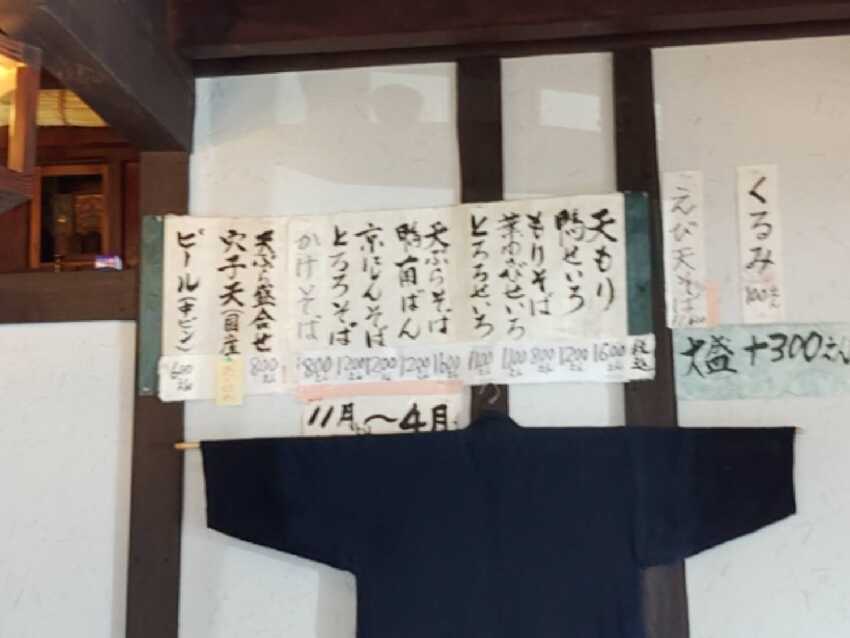 くるみ
100えん
えび天そば
大盛 +300えん
税込
天もり
1600えん
鴨せいろ
1200えん
もりそば
800えん
葉わさびせいろ
1100えん
とろろせいろ
1100えん
天ぷらそば
1600えん
鴨南ばん
1200えん
京にしんそば
1200えん
とろろそば
1200えん
かけそば
800えん
11月〜4月
天ぷら盛合せ
800えん
穴子天(国産
ビール(中ビン)
600えん